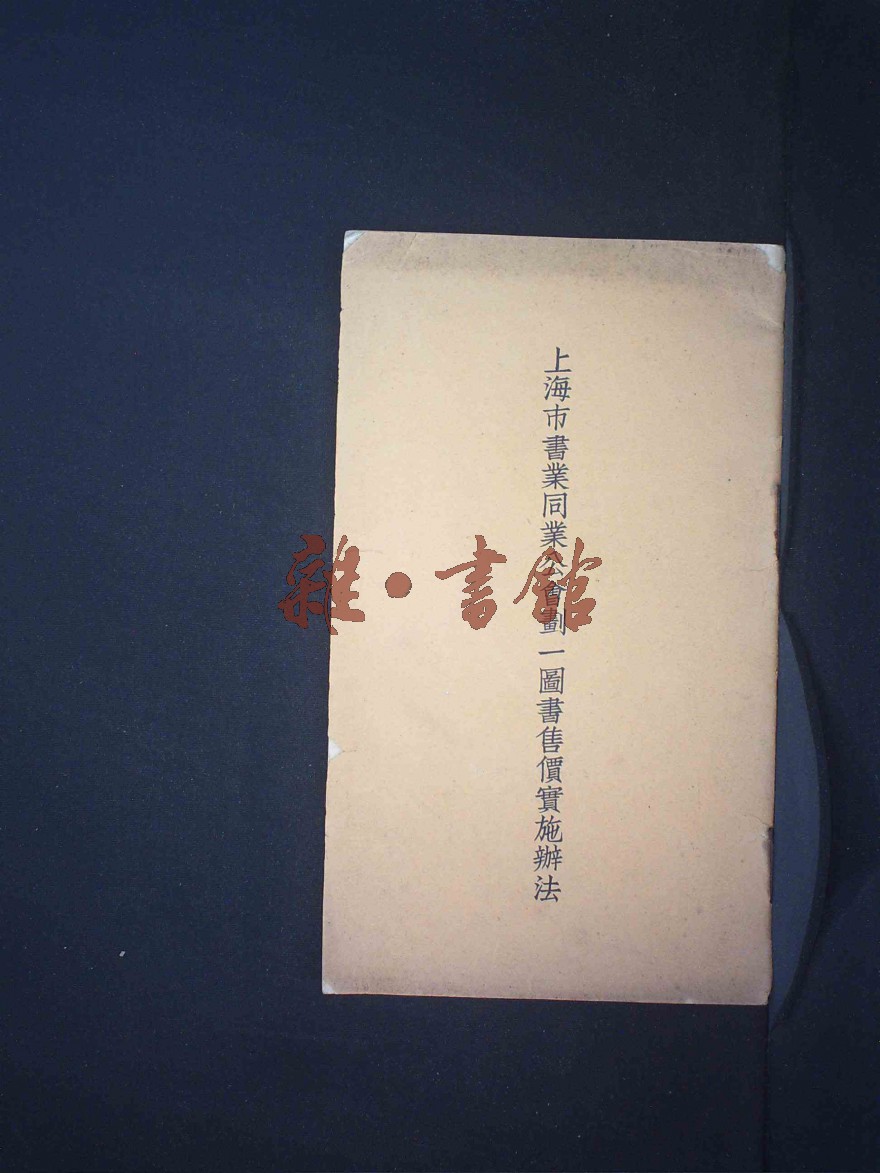 上海市書業同業公會劃一圖書售價實施辦法
雜·書館